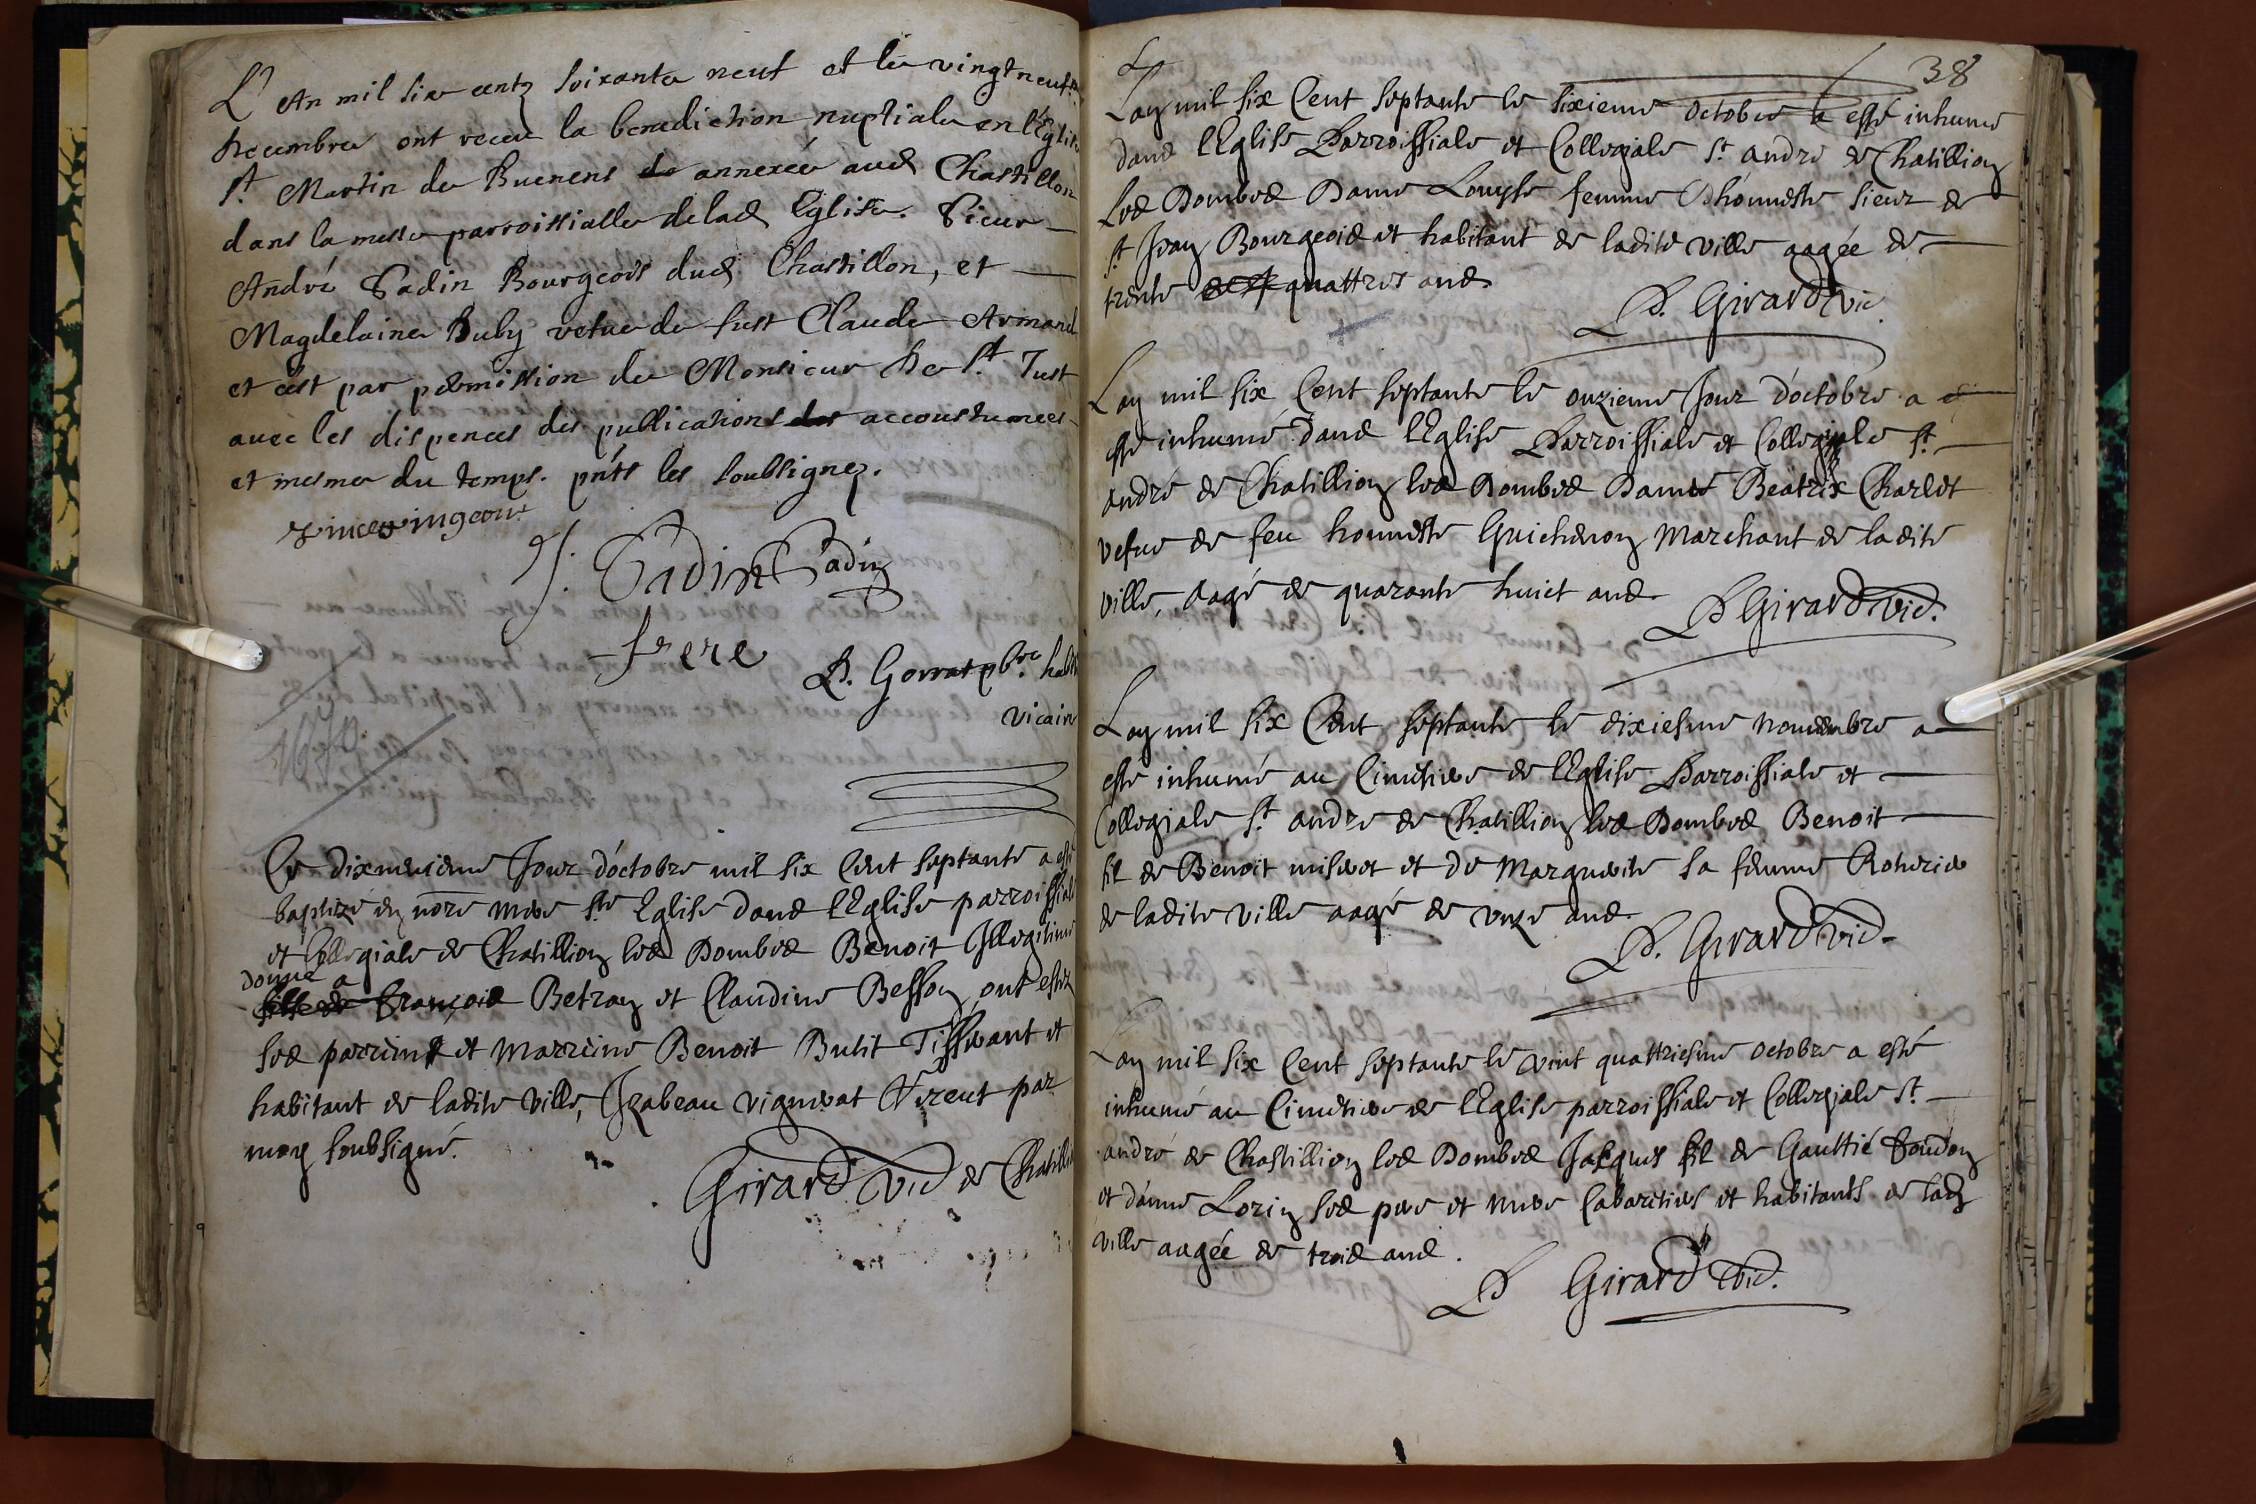 L'An mil six centz soixante neuf et le vingt neuf
decembre ont receu la benediction nuptiale en l'Eglise
St. Martin de Buenens de annexée aud Chastillon
dans la messe parroissialle delad Eglise. Sieur
André Sadin Bourgeois dud. Chastillon, et
Magdelaine Buby vefue de fust Claude Armand
et cest par permission de Monsieur De St. Just
auec les dispences des publications des accoustumees
et mesme du temps. pnts les soubsignez.
J. Sadin Sadin
frere
P. Gorrat pbre. hab
vicaire
1670
Ce dixneusieme Jour d'octobre mil six Cent septante a esté
baptizé en nore mere ste Eglise dans l'Eglise parroissiale
et Collegiale de Chatillion les Dombes Benoit Illegitime
donné a
fille de François Betran et Claudine Besson, ont estez
ses parrins et marreine Benoit Butit Tisserant et
habitant de ladite ville, Izabeau vignerat Virent par
moy soubsigné.
Girard Vic de Chatilli
38
L
Lan mil six Cent septante le sixieme octobre a esté inhume
dans lEglise Parroissiale et Collegiale St. andre de Chatillion
les Dombes Dame Louyse femme d'honneste sieur de
St Jean Bourgeois et habitant de ladite ville aagée de
trente quattres ans
P. Girard vic.
Lan mil six Cent septante le onzieme Jour d'octobre a
esté inhumé dans lEglise Parroissiale et Collegiale St.
andré de Chatillion les Dombes Dame Beatrix Charlet
vefue de feu honneste Guichenon Marchant de ladite
ville, aagé de quarante huict ans
P Girard vic.
Lan mil six Cent septante le dixiesme nouembre a
esté inhumé au Cimetiere de lEglise Parroissiale et
Collegiale St. andre de Chatillion les Dombes Benoit
fil de Benoit miseret et de Marguerite sa femme
de ladite ville aagé de onze ans
P. Girard vic.
Lan mil six Cent septante le vint quattriesme octobre a esté
inhumé au Cimetiere de lEglise parroissiale et Collegiale St.
andré de Chastillion les Dombes Jacques fil de Gaultié
et d'anne Lorin ses pere et mere Cabaretiers et habitants de lad
ville aagée de trois ans.
P Girard vic.